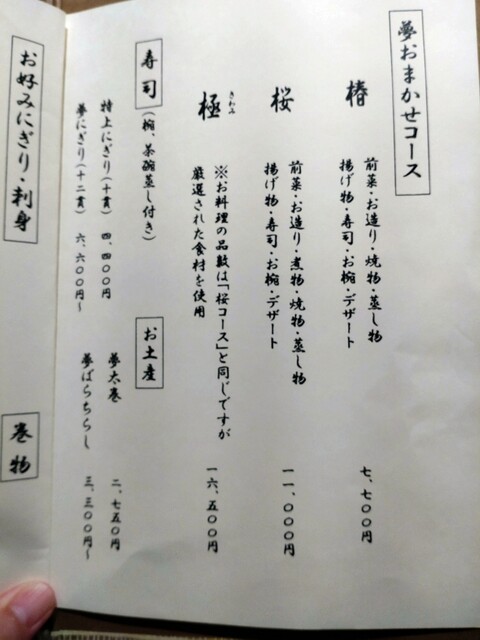 夢おまかせコース
椿
前菜・お造り・焼物・蒸し物
揚げ物・寿司・お椀・デザート
七、七〇〇円
桜
前菜・お造り・煮物・焼物・蒸し物
揚げ物・寿司・お椀・デザート
一一、〇〇〇円
極
きわみ
※お料理の品数は「桜コース」と同じですが
厳選された食材を使用
一六、五〇〇円
寿司(椀、茶碗蒸し付き)
特上にぎり(十貫) 四、四〇〇円
夢にぎり(十二貫) 六、六〇〇円~
お土産
夢太巻 二、七五〇円
夢ばらちらし 三、三〇〇円~
お好みにぎり・刺身
巻物